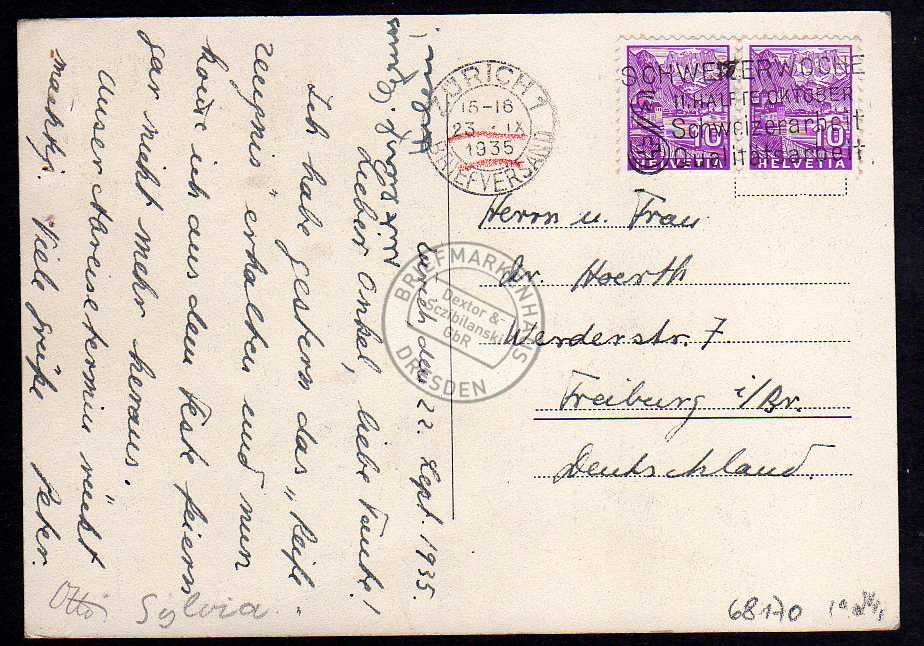 ZÜRICH 7
15-16
23.-IX
1935
BRIEFVERSAND
SCHWEIZERWOCHE
II. HÄLFTE OKTOBER
Schweizerarbeit
Qualitätsarbeit
10 10
HELVETIA HELVETIA
Herrn u. Frau
Dr. Hoerth
Werderstr. 7
Freiburg i/Br.
Deutschland.
Zürich den 22. Sept. 1935.
Lieber Onkel, liebe Tante!
Ich habe gestern das „Reife-
zeugnis" erhalten und nun
komme ich aus dem Feste feiern
gar nicht mehr heraus.
Unser Abreisetermin rückt
mächtig. Viele Grüße Peter.
Otto
Sylvia
68170
BRIEFMARKENHAUS
Dextor &
Sczibilanski
GbR
DRESDEN